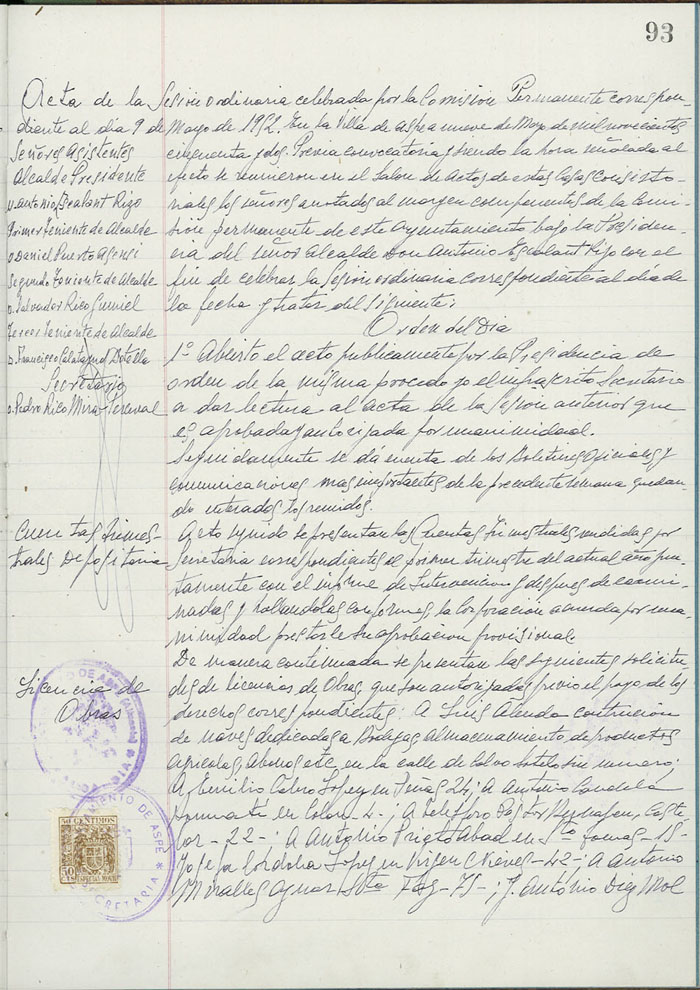 93
Acta de la Sesion ordinaria celebrada por la Comision Permanente correspon
diente al dia 9 de Mayo de 1952. En la Villa de Aspe a nueve de Mayo de mil novecientos
Señores Asistentes
Alcalde Presidente
D. Antonio Escalant Rizo
Primer Teniente de Alcalde
D Daniel Puerto Asensi
Segundo Teniente de Alcalde
D. Salvador Rico Gumiel
Tercer Teniente de Alcalde
D. Francisco Calatayud Botella
Secretario
D. Pedro Rico Mira-Perceval
cincuenta y dos. Previa convocatoria y siendo la hora señalada al
efecto se reunieron en el Salon de Actos de estas Casas consisto-
riales los señores anotados al margen componentes de la Comi-
sion permanente de este Ayuntamiento bajo la Presiden-
cia del Señor Alcalde Don Antonio Escalant Rizo con el
fin de celebrar la Sesion ordinaria correspondiente al dia de
la fecha y tratar del siguiente:
Orden del Dia
1º Abierto el acto publicamente por la Presidencia de
orden de la misma procedo yo el infrascrito Secretario
a dar lectura al acta de la Sesion anterior que
es aprobada y autorizada por unanimidad.
Seguidamente se da cuenta de los Boletines Oficiales y
comunicaciones mas importantes de la precedente semana quedan-
do enterados los reunidos.
Cuentas Trimes-
trales Depositaria
Acto seguido se presentan las Cuentas Trimestrales rendidas por
Secretaria correspondientes al primer trimestre del actual año jun-
tamente con el informe de Intervencion y despues de exami-
nadas y hallandolas conformes, la Corporacion acuerda por una-
nimidad prestarle su aprobacion provisional
Licencia de
Obras
De manera continuada se presentan las siguientes solicitu-
des de licencias de Obras, que son autorizadas previo el pago de los
derechos correspondientes: A Luis Alenda contruccion
de naves dedicadas a Bodegas, almacenamiento de productos
agricolas, abonos etc, en la calle de Calvo Sotelo sin numero;
A Emilio Calvo Lopez en Peñas 24; A Antonio Candela
en Colon-4-; A Telesforo Pastor Caste
lar-22-; A Antonio Prieto Abad en Sto Tomas-15-
Josefa Cordoba Lopez en Virgen Nieves-42-; A Antonio
Miralles Aznar Sta Faz-75-; J. António Diez Mol
50 CENTIMOS
50 CTS
ESPECIAL MOVIL
AYUNTAMIENTO DE ASPE
SECRETARIA